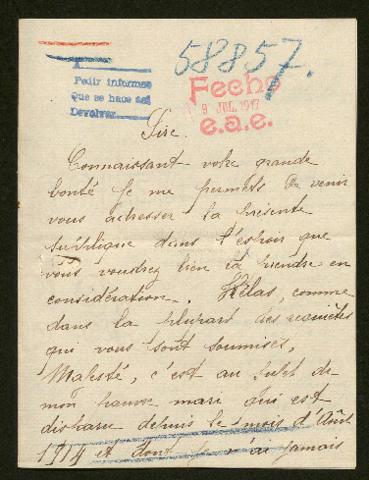 58857.
Pedir informes
Que se hace así
Devolver
Fecho
9 JUL. 1917
e.a.e.
Sire.
Connaissant votre grande
bonté je me permets de venir
vous adresser la présente
supplique dans l'espoir que
vous voudrez bien la prendre en
considération. Hélas, comme
dans la plupart des requêtes
qui vous sont soumises,
Majesté, c'est au sujet de
mon pauvre mari qui est
disparu depuis le mois d'Août
1914 et dont je n'ai jamais